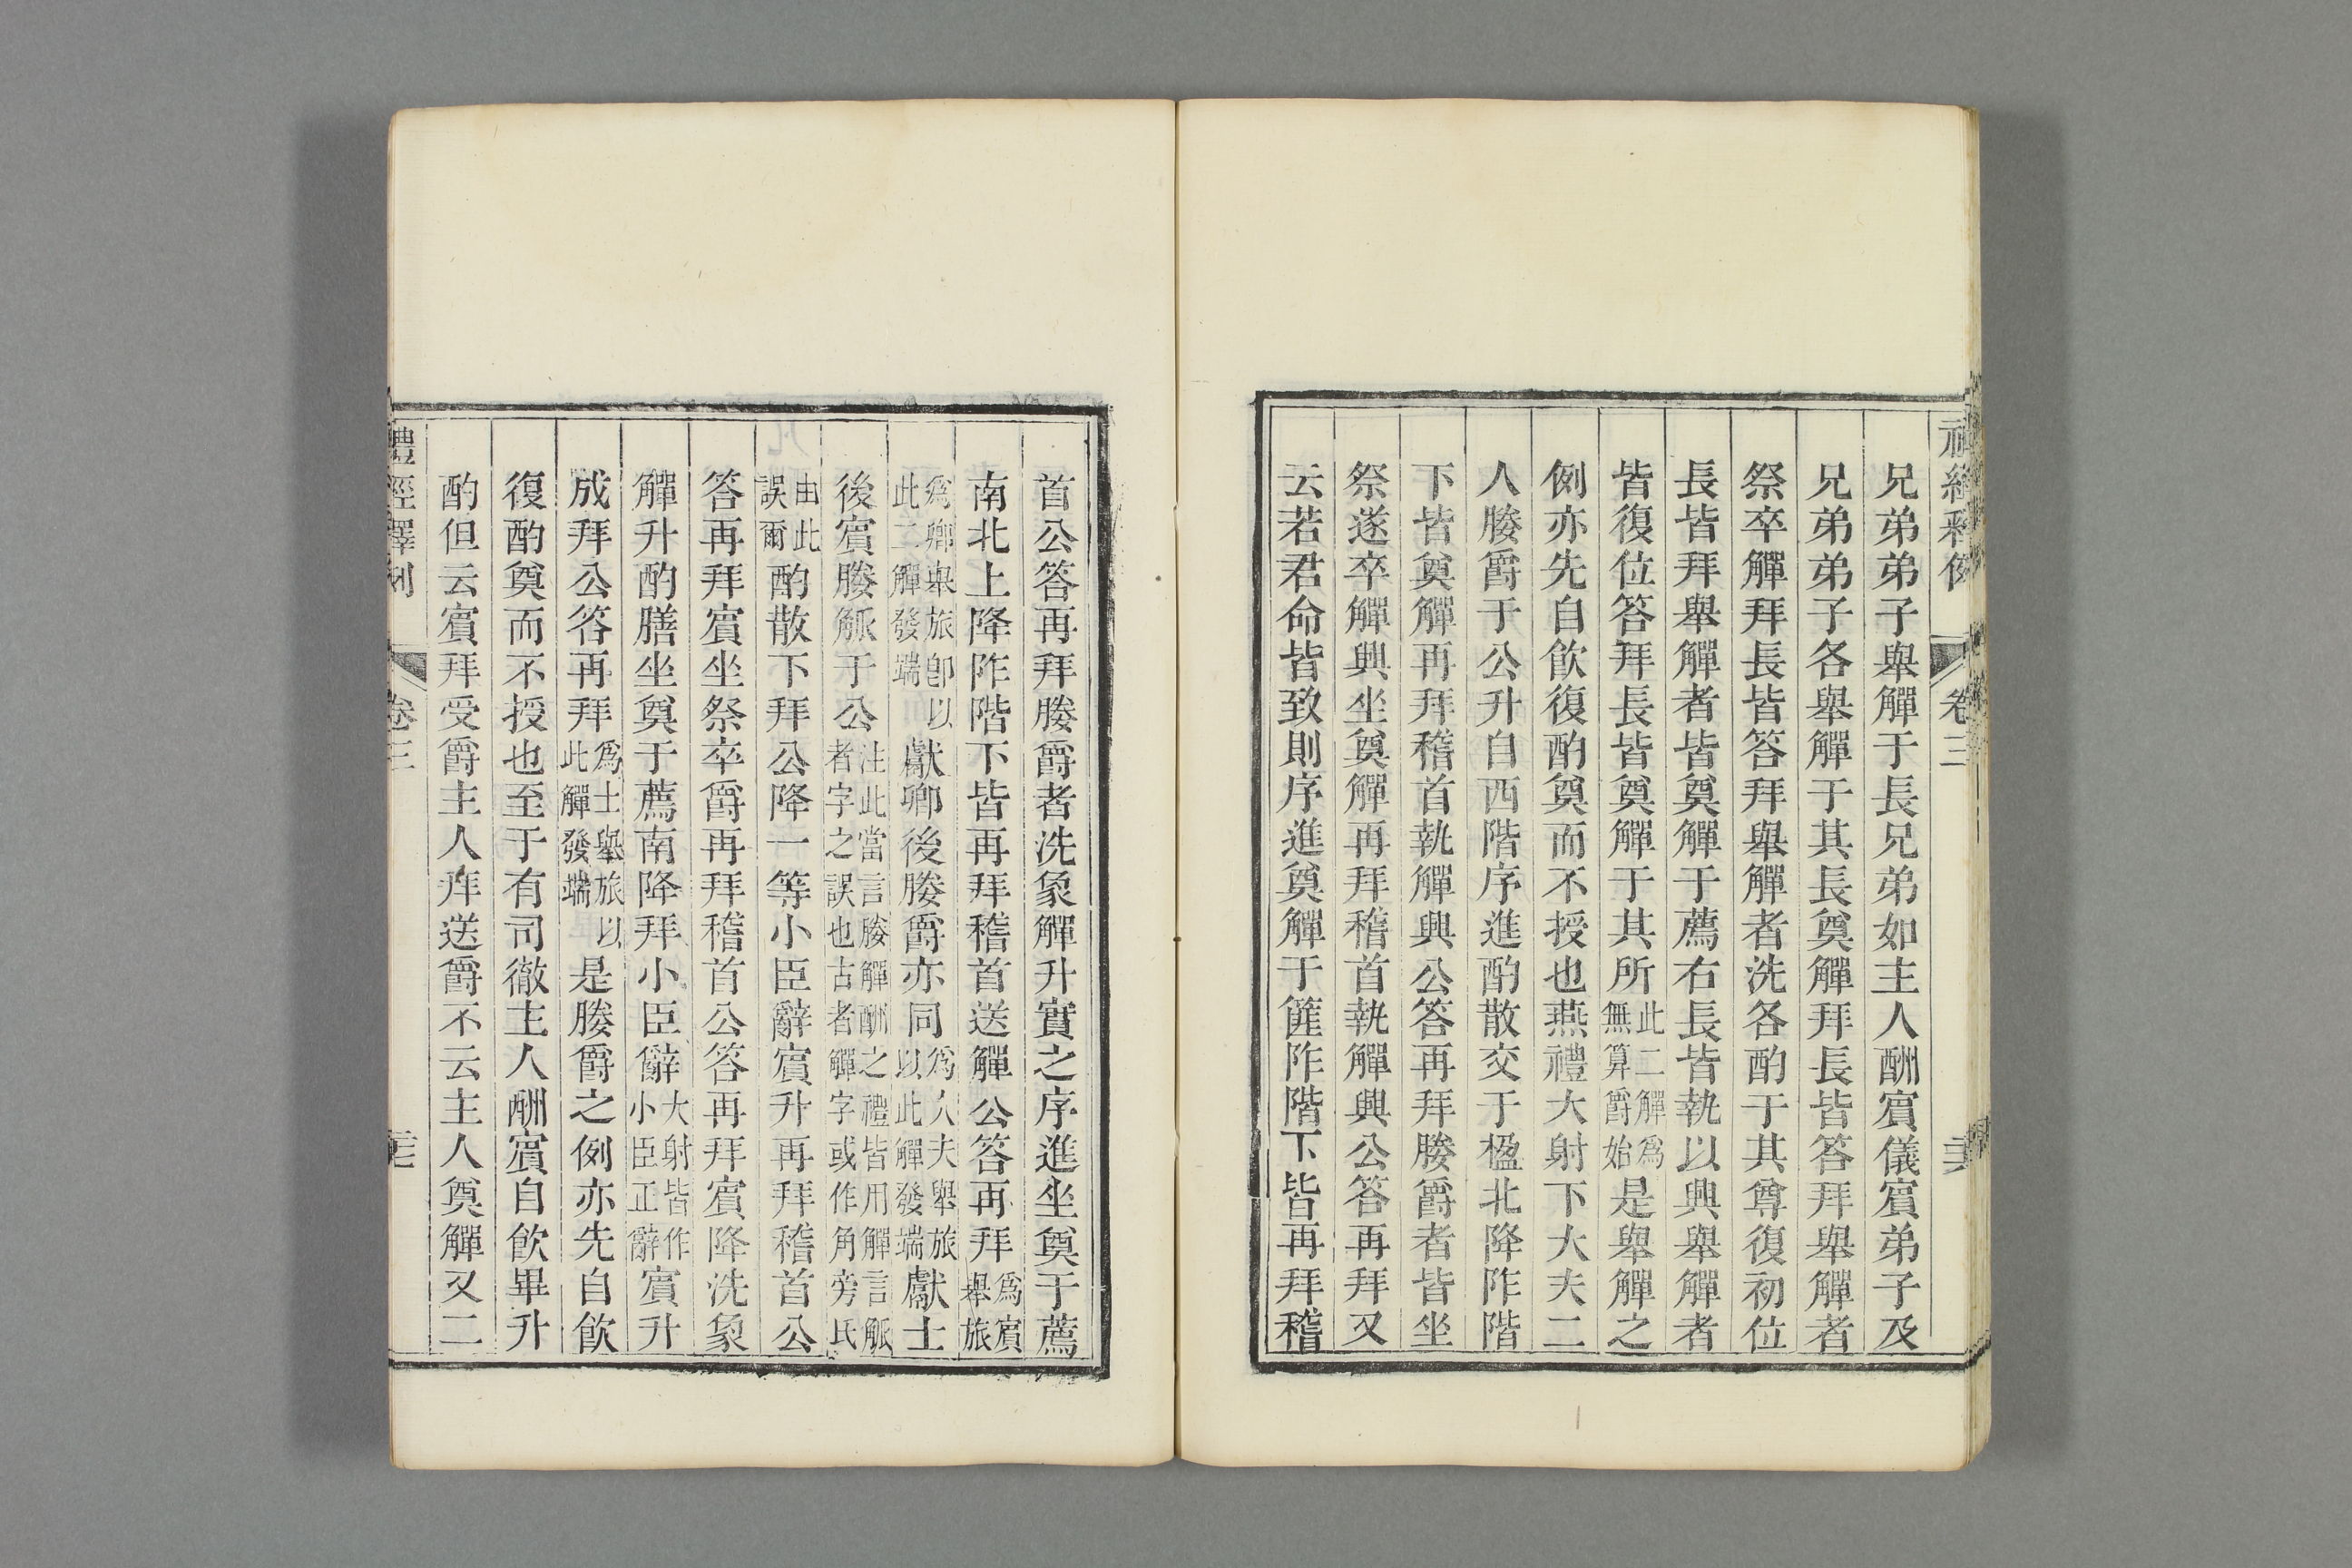 禮經釋例 卷三
兄弟弟子舉觶于長兄弟如主人酬賓儀賓弟子及
兄弟弟子各舉觶于其長奠觶拜長皆答拜舉觶者
祭卒觶拜長皆答拜舉觶者洗各酌于其尊復初位
長皆拜舉觶者皆奠觶于薦右長皆執以興舉觶者
皆復位答拜長皆奠觶于其所此二觶爲無算爵始是舉觶之
例亦先自飮復酌奠而不授也燕禮大射下大夫二
人媵爵于公升自西階序進酌散交于楹北降阼階
下皆奠觶再拜稽首執觶興公答再拜媵爵者皆坐
祭遂卒觶興坐奠觶再拜稽首執觶興公答再拜又
云若君命皆致則序進奠觶于篚阼階下皆再拜稽
首公答再拜媵爵者洗象觶升實之序進坐奠于薦
南北上降阼階下皆再拜稽首送觶公答再拜爲賓舉旅
爲卿舉旅卽以此二觶發端獻卿後媵爵亦同爲大夫舉旅以此觶發端獻士
後賓媵觚于公注此當言媵觶酬之禮皆用觶言觚者字之誤也古者觶字或作角旁氏
由此誤爾酌散下拜公降一等小臣辭賓升再拜稽首公
答再拜賓坐祭卒爵再拜稽首公答再拜賓降洗象
觶升酌膳坐奠于薦南降拜小臣辭大射皆作小臣正辭賓升
成拜公答再拜爲士舉旅以此觶發端是媵爵之例亦先自飮
復酌奠而不授也至于有司徹主人酬賓自飮畢升
酌但云賓拜受爵主人拜送爵不云主人奠觶又二
禮經釋例 卷三